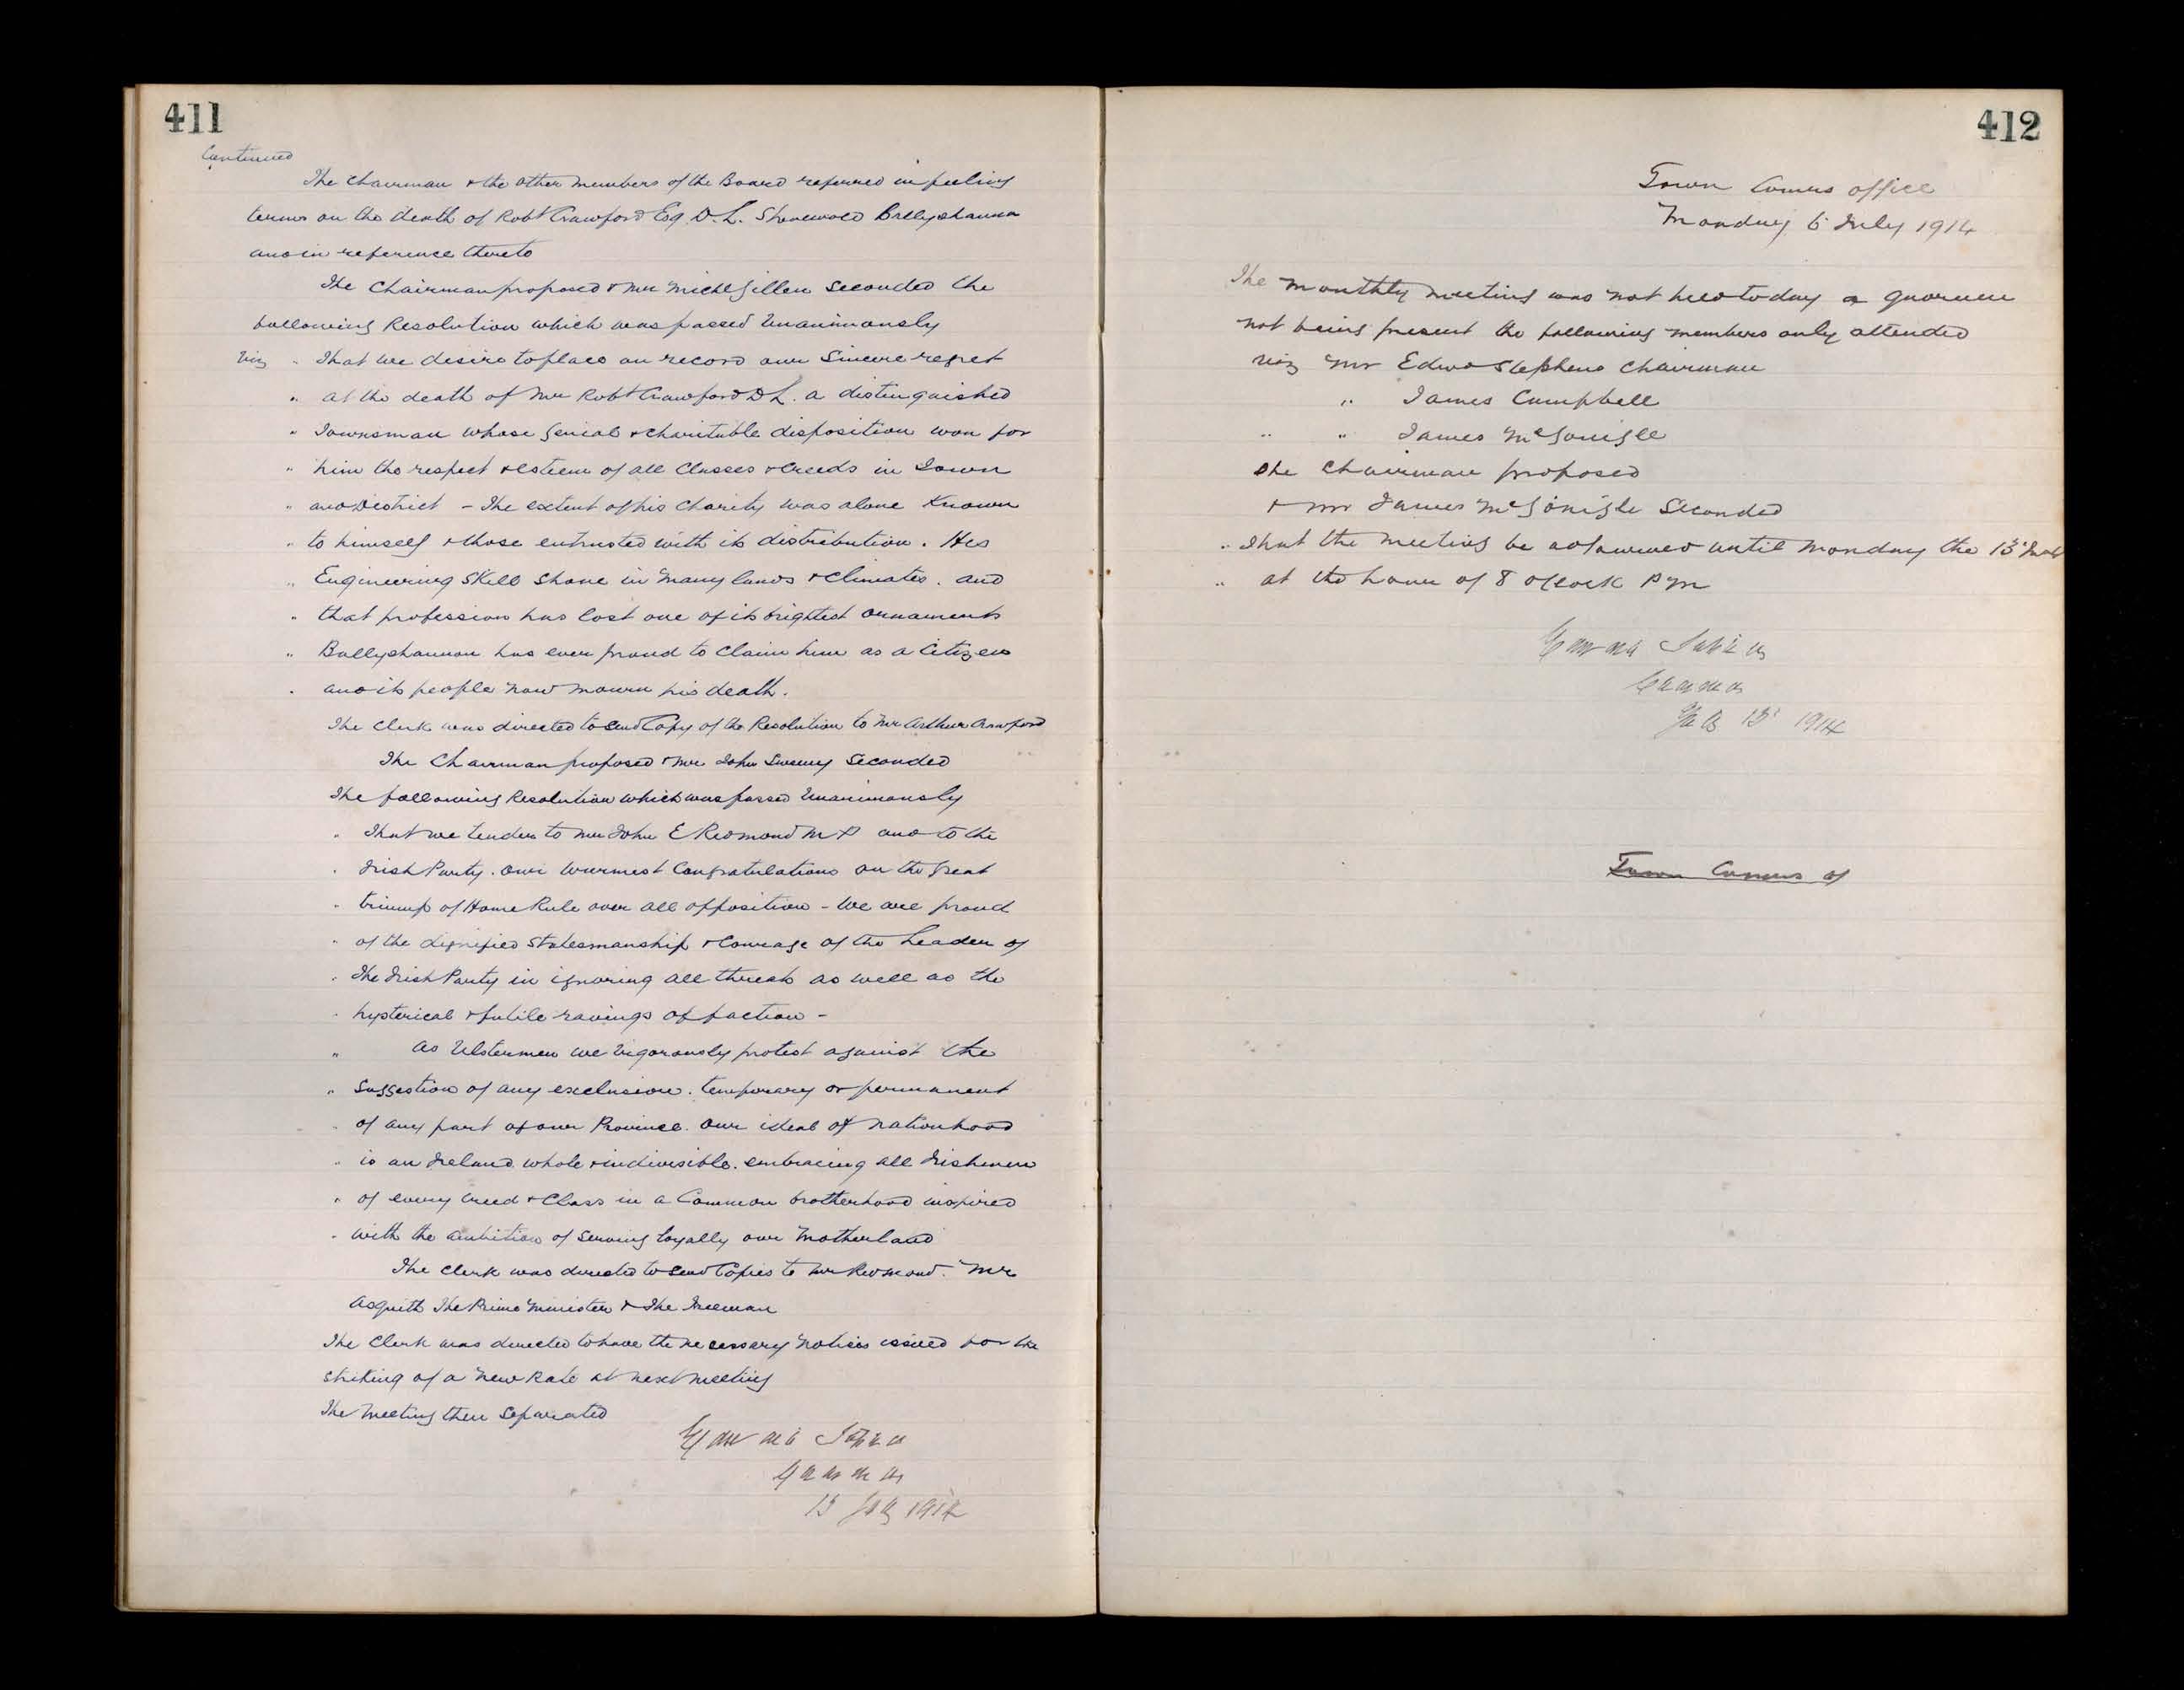 411
Continued
The Chairman & the other members of the Board referred in feeling
terms on the death of Robt Crawford Esq D.L. Stonewold Ballyshannon
and in reference thereto
The Chairman proposed & Mr Michl Gillen Seconded the
following Resolution which was passed Unanimously
Viz " That we desire to place on record our Sincere regret
" at the death of Mr Robt Crawford DL. a distinguished
" Townsman whose genial & charitable disposition won for
" him the respect & esteem of all Classes & Creeds in Town
" and District - The extent of his Charity was alone Known
" to himself & those entrusted with its distribution. His
" Engineering Skill Shone in many lands & Climates. and
" that profession has lost one of its brightest Ornaments
" Ballyshannon has ever proud to Claim him as a Citizen
" and its people now mourn his death.
The Clerk was directed to send Copy of the Resolution to Mr Arthur Crawford
The Chairman proposed & Mr John Sweeny Seconded
The following Resolution which was passed Unanimously
" That we tender to Mr John E Redmond MP and to the
" Irish Party. Our Warmest Congratulations on the great
" triump of Home Rule over all opposition - We are proud
" of the dignified Statesmanship & Courage of the Leader of
" The Irish Party in ignoring all threats as well as the
" hysterical & futile ravings of faction -
" As Ulstermen we Vigorously protest against the
" Suggestion of any exclusion. temporary or permanent
" of any part of our Province. Our ideal of nationhood
" is an Ireland whole & indivisible. embracing all Irishmen
" of every Creed & Class in a Common brotherhood inspired
" with the ambition of Serving loyally our Motherland
The Clerk was directed to send Copies to Mr Redmond. Mr
Asquith The Prime Minister & The Freeman
The Clerk was directed to have the necessary notices issued for the
striking of a New Rate at next meeting
The Meeting then Separated
Edward Stephens
Chairman
13 July 1914
412
Town Comrs office
Monday 6 July 1914
The monthly meeting was not held today a quorum
not being present the following members only attended
viz Mr Edwd Stephens Chairman
" James Campbell
" " James McGonigle
The Chairman proposed
& Mr James McGonigle Seconded
" That the meeting be adjourned until Monday the 13 Inst
" at the hour of 8 o'clock P m
Edward Stephens
Chairman
July 13 1914
Town Comrs of